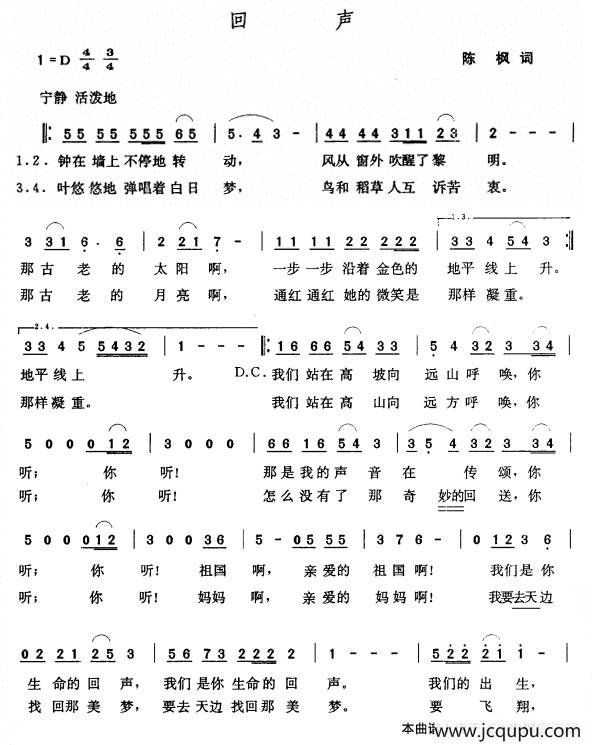 回 声
1=D 4/4 3/4 陈 枫 词
宁静 活泼地
‖: 55 55 5555 65 | 5. 4 3 - | 44 44 3311 23 | 2 - - - |
1.2. 钟在 墙上 不停地 转 动， 风从 窗外 吹醒了 黎 明。
3.4. 叶悠 悠地 弹唱着 白日 梦， 鸟和 稻草 人互 诉苦 衷。
1.3.
3 31 6. 6 | 2 221 7 - | 11 11 22 222 | 33 4 54 3 :‖
那古 老的 太阳啊， 一步 一步 沿着 金色的 地平 线 上 升。
那古 老的 月亮啊， 通红 通红 她的 微笑是 那样 凝 重。
2.4.
33 4 5 5432 | 1 - - - ‖: 16 66 54 34 | 54 4 32 34 |
地平 线 上 升。 D.C. 我们 站在 高 坡向 远山 呼 唤，你
那样 凝 重。 我们 站在 高 山向 远方 呼 唤，你
5 0 0 012 | 3 0 0 0 | 66 16 54 3 | 35 4 32 34 |
听； 你 听！ 那是 我的 声 音 在 传 颂，你
听； 你 听！ 怎么 没有 了 那 奇 妙的 回 送，你
5 0 0 012 | 3 0 0 36 | 5 - 05 55 | 3 7 6 - | 0123 6 |
听； 你 听！ 祖国 啊， 亲 爱的 祖国 啊！ 我们是 你
听； 你 听！ 妈妈 啊， 亲 爱的 妈妈 啊！ 我要去天边
02 21 25 3 | 56 73 222 2 | 1 - - - | 5 22 21 1 |
生 命的 回 声， 我们 是你 生命的 回 声。 我们的 出 生，
找 回那 美 梦， 要去 天边 找回那 美 梦。 要 飞 翔，
本曲谱
www.jcqupu.com